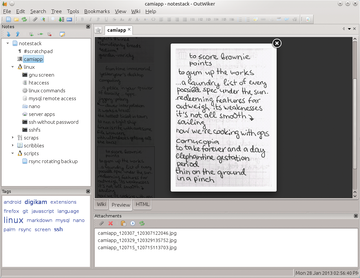 camiapp - notestack - OutWiker
File Edit Search Tree Tools Bookmarks View Wiki Help
Notes
notestack
#scratchpad
camiapp
linux
gnu screen
htaccess
linux commands
mysql remote access
nano
server apps
ssh without password
sshfs
scraps
scribbles
scripts
rsync rotating backup
Tags
android digikam extensions
firefox git javascript language
linux mysql nano
palm rsync screen ssh
camiapp
to score brownie
points
to gum up the works
a laundry list of every
possible spec under the sun
redeeming features far
outweigh its weaknesses
it's not all smooth
sailing
now we're cooking with gas
cornucopia
to take forever and a day
elephantine gestation
period
thin on the ground
in a pinch
Wiki Preview HTML
Attachments
camiapp_120307_120307122046.jpg
camiapp_120329_120329135752.jpg
camiapp_120715_120715113703.jpg
Mon 28 Jan 2013 02:56:40 PM